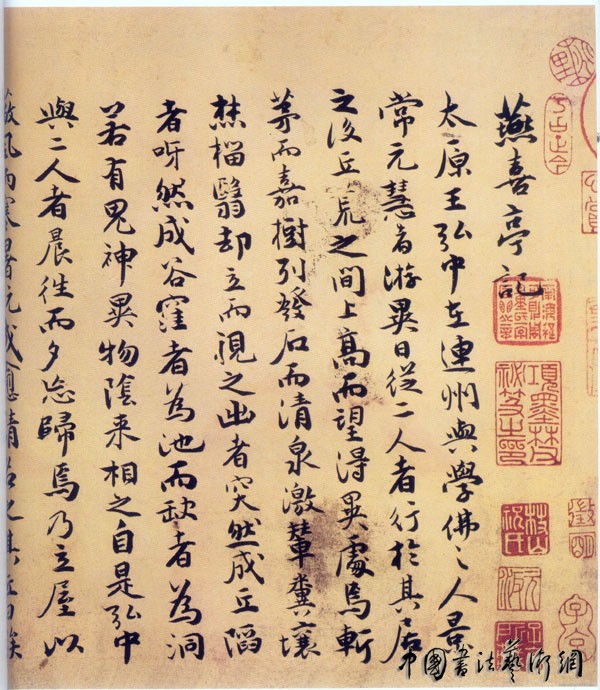 燕喜亭記
太原王弘中在連州與學佛之人景
常元慧者游異日從二人者行於其居
之後丘荒之間上高而望得異處焉斬
茅而嘉樹列發石而清泉激輦糞壤
焚榴翳却立而視之出者突然成丘陷
者呀然成谷窪者為池而缺者為洞
若有鬼神異物陰来相之自是弘中
與二人者晨往而夕忘歸焉乃立屋以
風雨寒暑既成愈請名之其丘曰俟
項墨林祕笈之印
徵明
枝山
祝氏
子京
中國書法藝術網